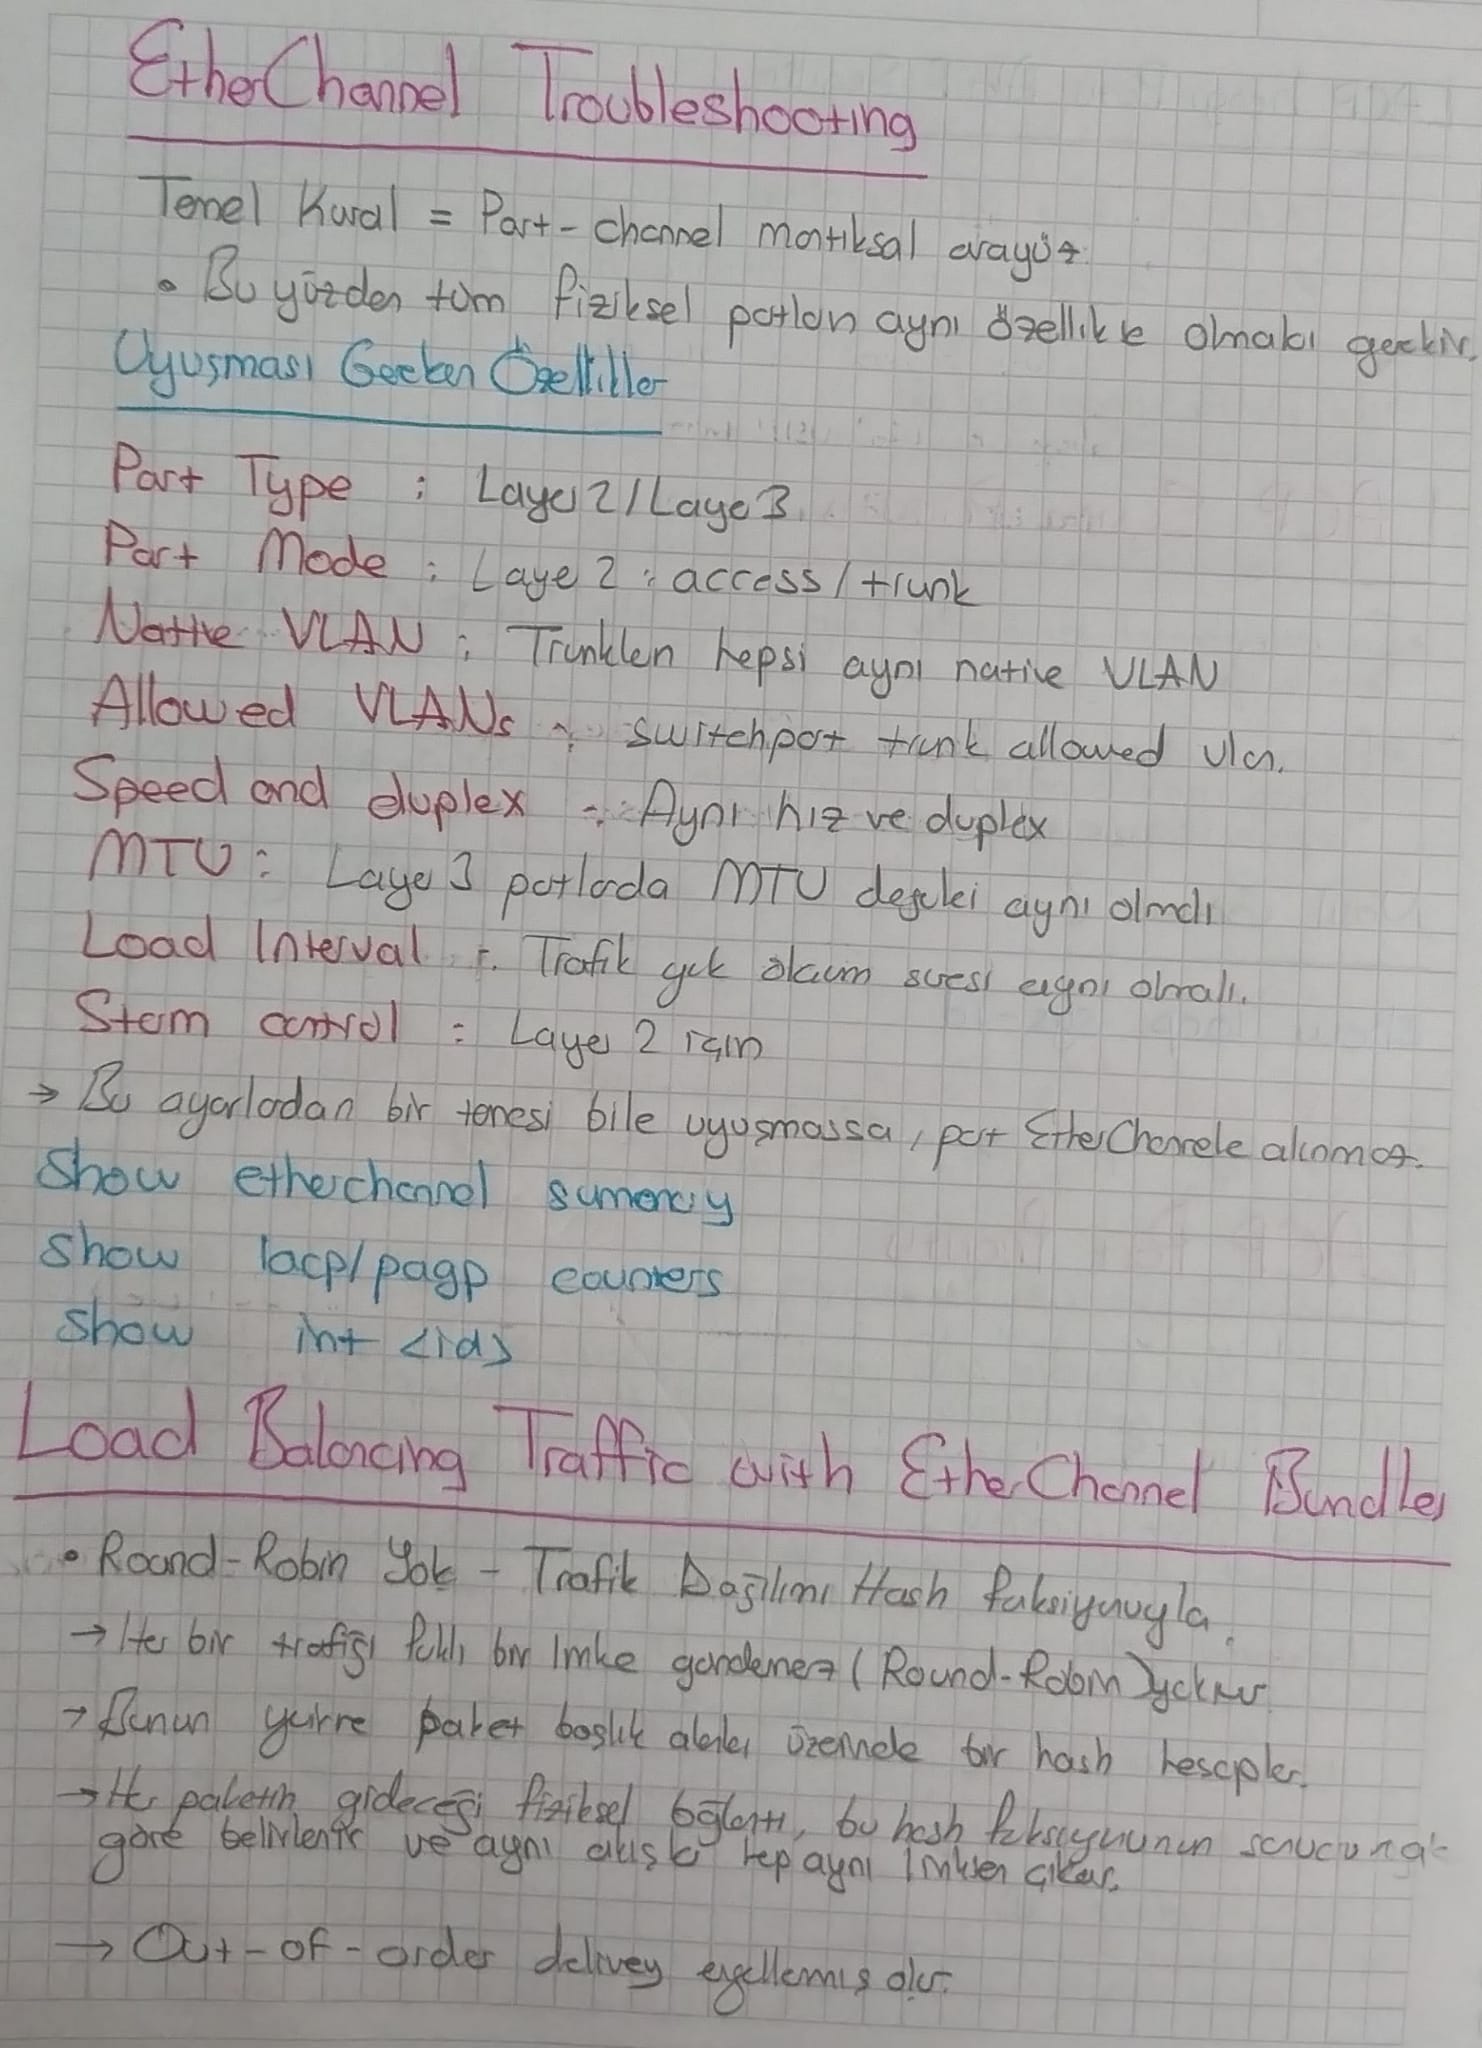 EtherChannel Troubleshooting
Temel Kural = Port-channel mantıksal arayüz.
• Bu yüzden tüm fiziksel portların aynı özellikte olmaları gerekir.
Uyuşması Gereken Özellikler
Port Type : Layer2/Layer3
Port Mode : Layer 2 : access/trunk
Native VLAN : Trunkların hepsi aynı native VLAN
Allowed VLANs : switchport trunk allowed vlan.
Speed and duplex : Aynı hız ve duplex
MTU : Layer 3 portlarda MTU değerleri aynı olmalı
Load Interval : Trafik yük ölçüm süresi aynı olmalı.
Storm control : Layer 2 için
→ Bu ayarlardan bir tanesi bile uyuşmassa, port EtherChannele alınmaz.
Show etherchannel sumamry
Show lacp/pagp counters
Show int <id>
Load Balancing Traffic with EtherChannel Bundles
• Round-Robin Yok - Trafik Dağılımı Hash fonksiyonuyla.
→ Her bir trafiği farklı bir linke göndermez (Round-Robin)
→ Bunun yerine paket başlık alanları üzerinde bir hash hesaplar.
→ Her paketin gideceği fiziksel bağlantı, bu hash fonksiyonunun sonucuna
göre belirlenir ve aynı akıştaki hep aynı linkten çıkar.
→ Out-of-order delivery engellenmiş olur.